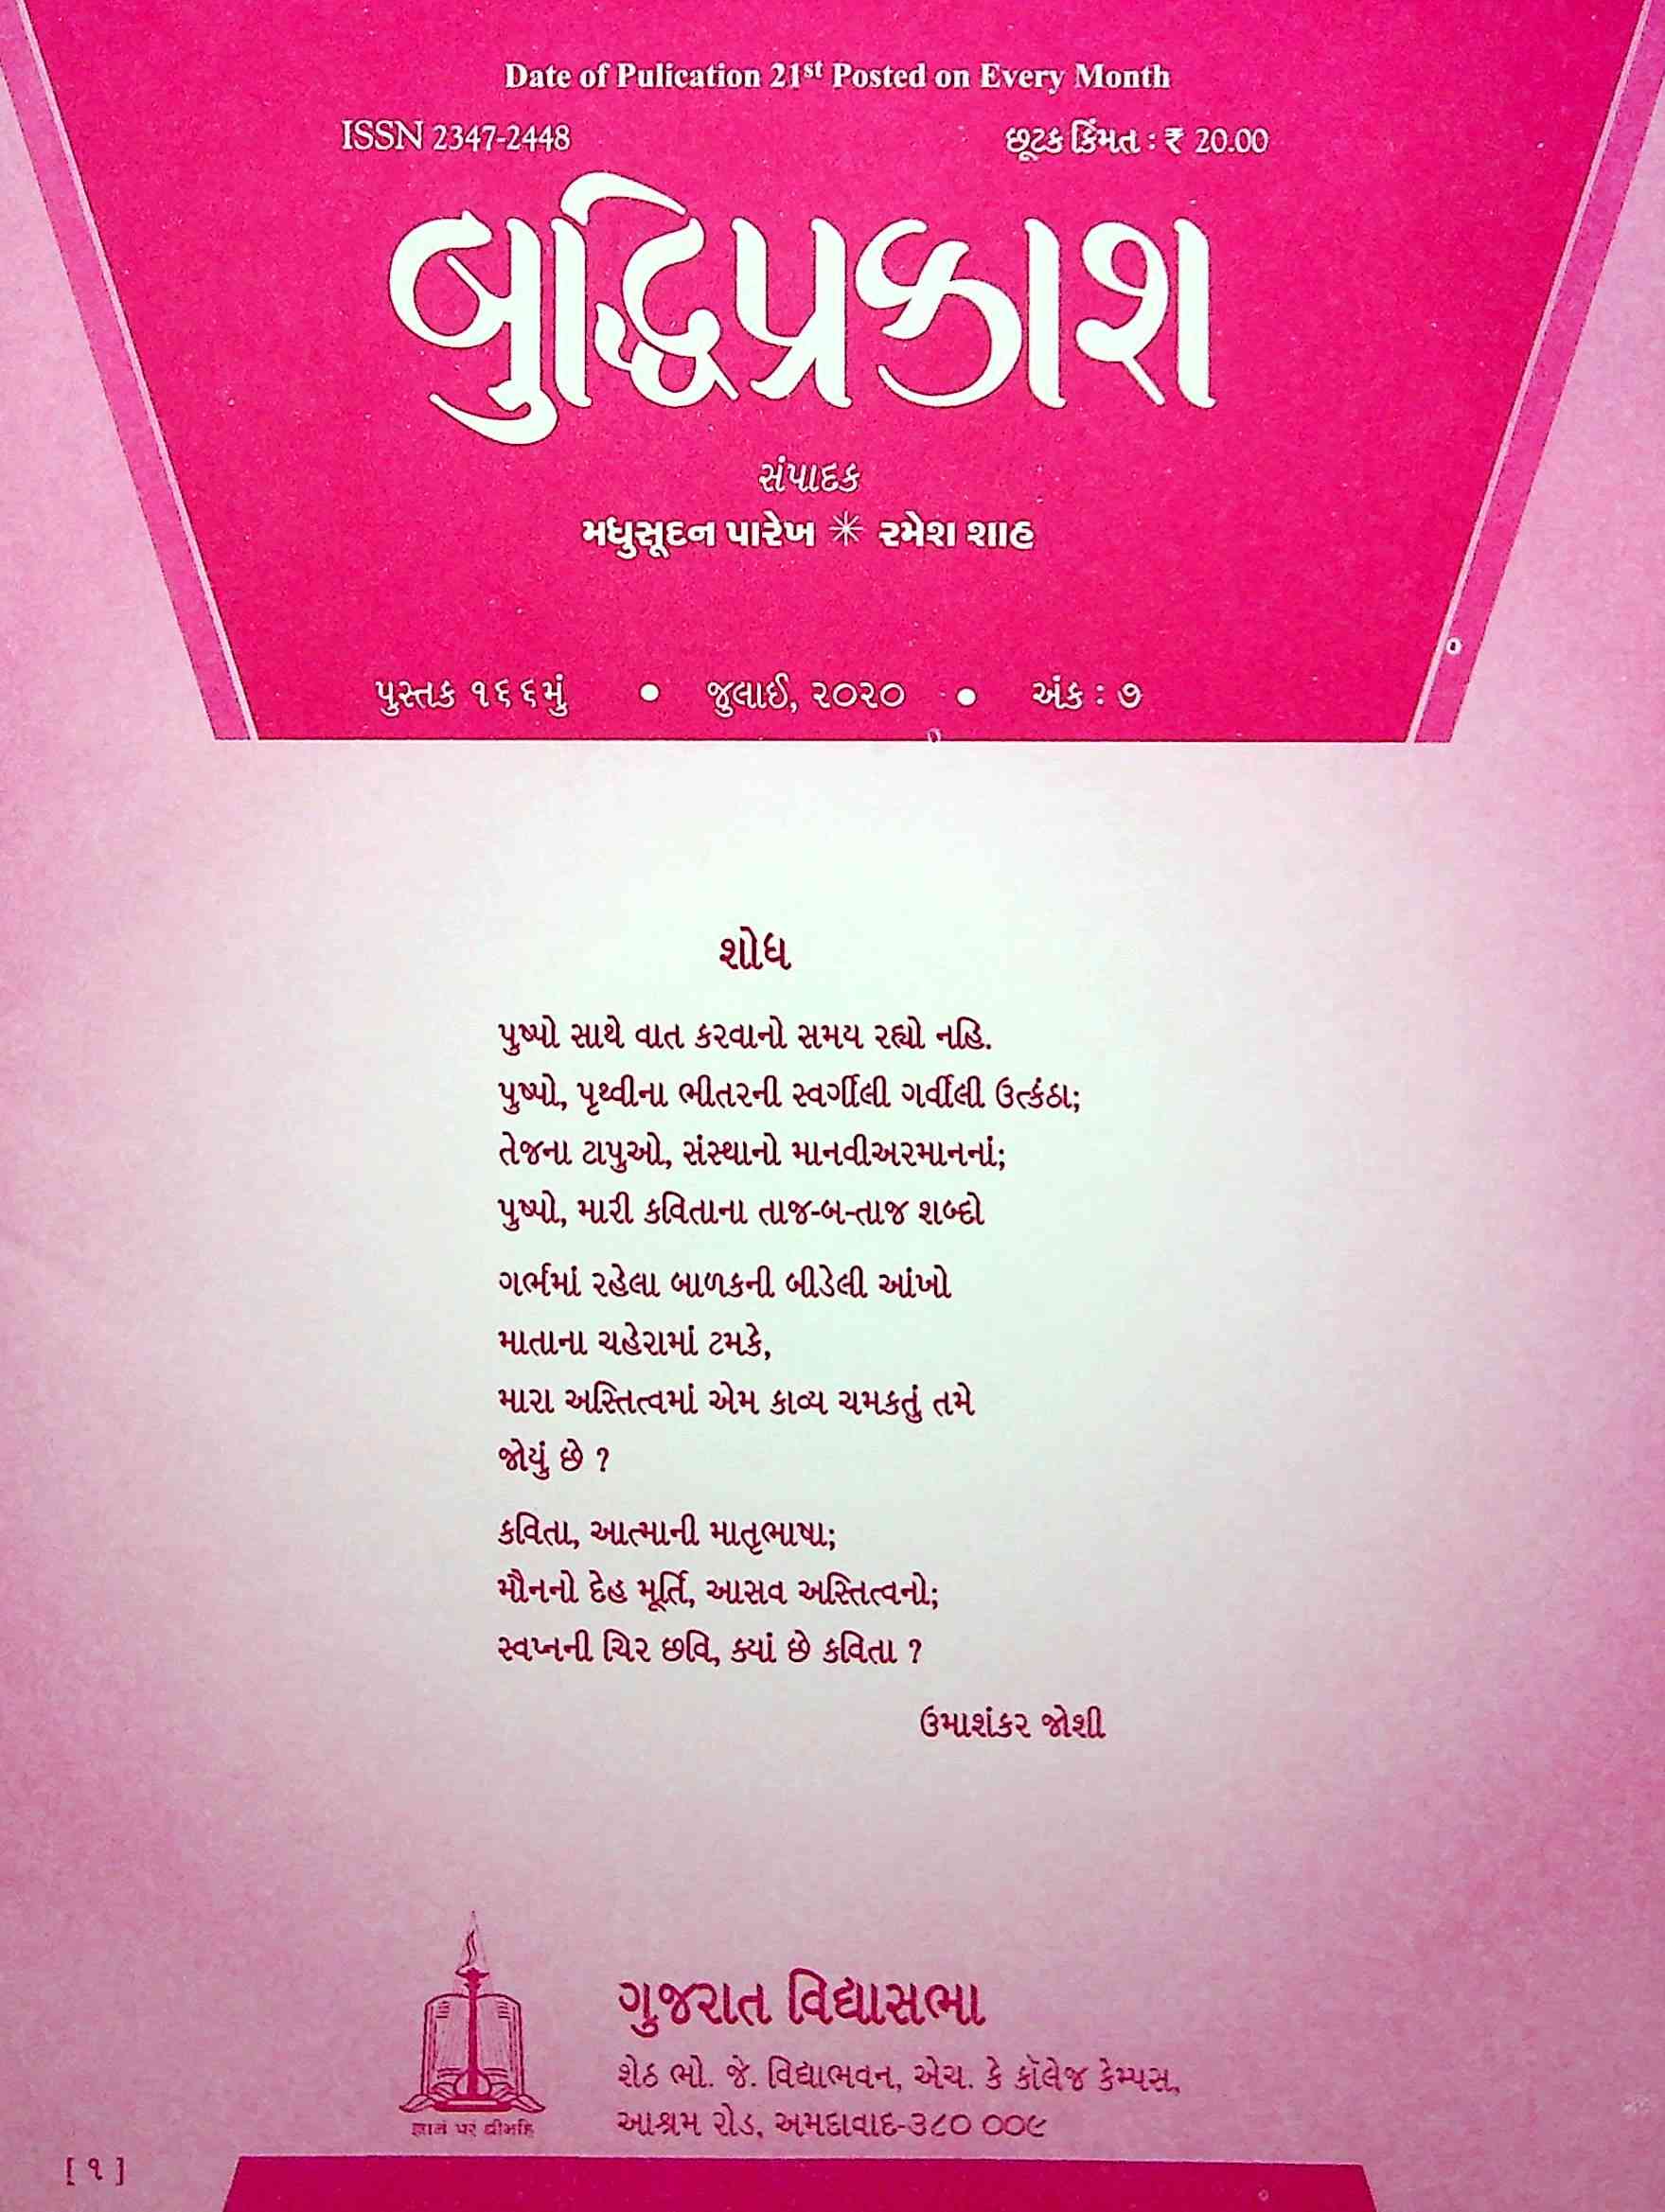 Date of Pulication 21st Posted on Every Month
ISSN 2347-2448 છૂટક કિંમત : ₹ 20.00
બુદ્ધિપ્રકાશ
સંપાદક
મધુસૂદન પારેખ ✳ રમેશ શાહ
પુસ્તક ૧૬૬મું • જુલાઈ, ૨૦૨૦ • અંક : ૭
શોધ
પુષ્પો સાથે વાત કરવાનો સમય રહ્યો નહિ.
પુષ્પો, પૃથ્વીના ભીતરની સ્વર્ગીલી ગર્વીલી ઉત્કંઠા;
તેજના ટાપુઓ, સંસ્થાનો માનવીઅરમાનનાં;
પુષ્પો, મારી કવિતાના તાજ-બ-તાજ શબ્દો
ગર્ભમાં રહેલા બાળકની બીડેલી આંખો
માતાના ચહેરામાં ટમકે,
મારા અસ્તિત્વમાં એમ કાવ્ય ચમકતું તમે
જોયું છે ?
કવિતા, આત્માની માતૃભાષા;
મૌનનો દેહ મૂર્તિ, આસવ અસ્તિત્વનો;
સ્વપ્નની ચિર છવિ, ક્યાં છે કવિતા ?
ઉમાશંકર જોશી
ગુજરાત વિદ્યાસભા
શેઠ ભો. જે. વિદ્યાભવન, એચ. કે કૉલેજ કેમ્પસ,
આશ્રમ રોડ, અમદાવાદ-૩૮૦ ૦૦૯
જ્ઞાનં પરં ધીમહિ
[ ૧ ]